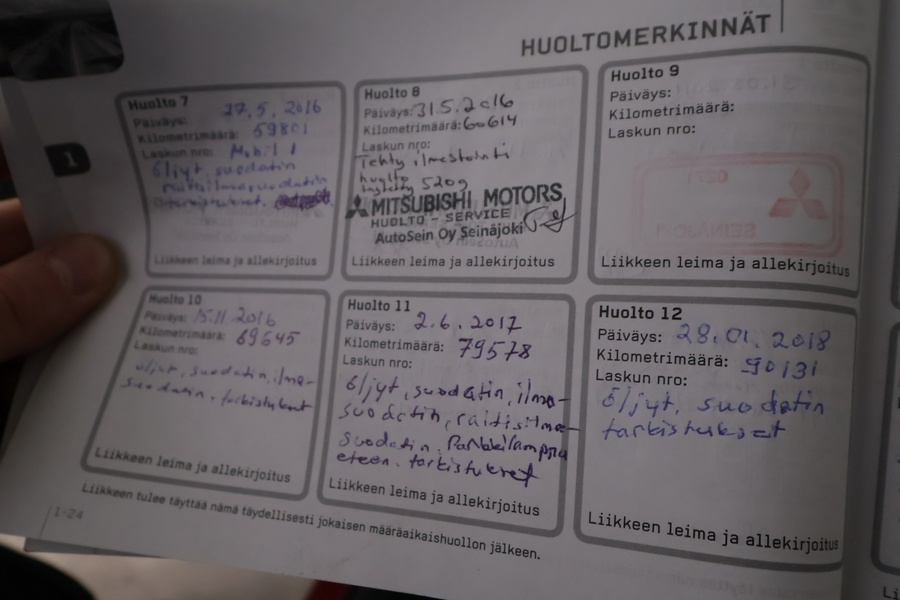 HUOLTOMERKINNÄT
1
Huolto 7
Päiväys: 27.5.2016
Kilometrimäärä: 59801
Laskun nro: Mobil 1
öljyt, suodatin
raitisilmasuodatin
tarkistukset.
Liikkeen leima ja allekirjoitus
Huolto 8
Päiväys: 31.5.2016
Kilometrimäärä: 60614
Laskun nro:
Tehty ilmastointi
huolto
520g
MITSUBISHI MOTORS
HUOLTO - SERVICE
AutoSein Oy Seinäjoki
Liikkeen leima ja allekirjoitus
Huolto 9
Päiväys:
Kilometrimäärä:
Laskun nro:
Liikkeen leima ja allekirjoitus
Huolto 10
Päiväys: 15.11.2016
Kilometrimäärä: 69645
Laskun nro:
öljyt, suodatin, ilma-
suodatin, tarkistukset
Liikkeen leima ja allekirjoitus
Huolto 11
Päiväys: 2.6.2017
Kilometrimäärä: 79578
Laskun nro:
öljyt, suodatin, ilma-
suodatin, raitisilma-
suodatin. Parkkilamppu
eteen. tarkistukset
Liikkeen leima ja allekirjoitus
Huolto 12
Päiväys: 28.01.2018
Kilometrimäärä: 90131
Laskun nro:
öljyt, suodatin
tarkistukset
Liikkeen leima ja allekirjoitus
Liikkeen tulee täyttää nämä täydellisesti jokaisen määräaikaishuollon jälkeen.
1-24